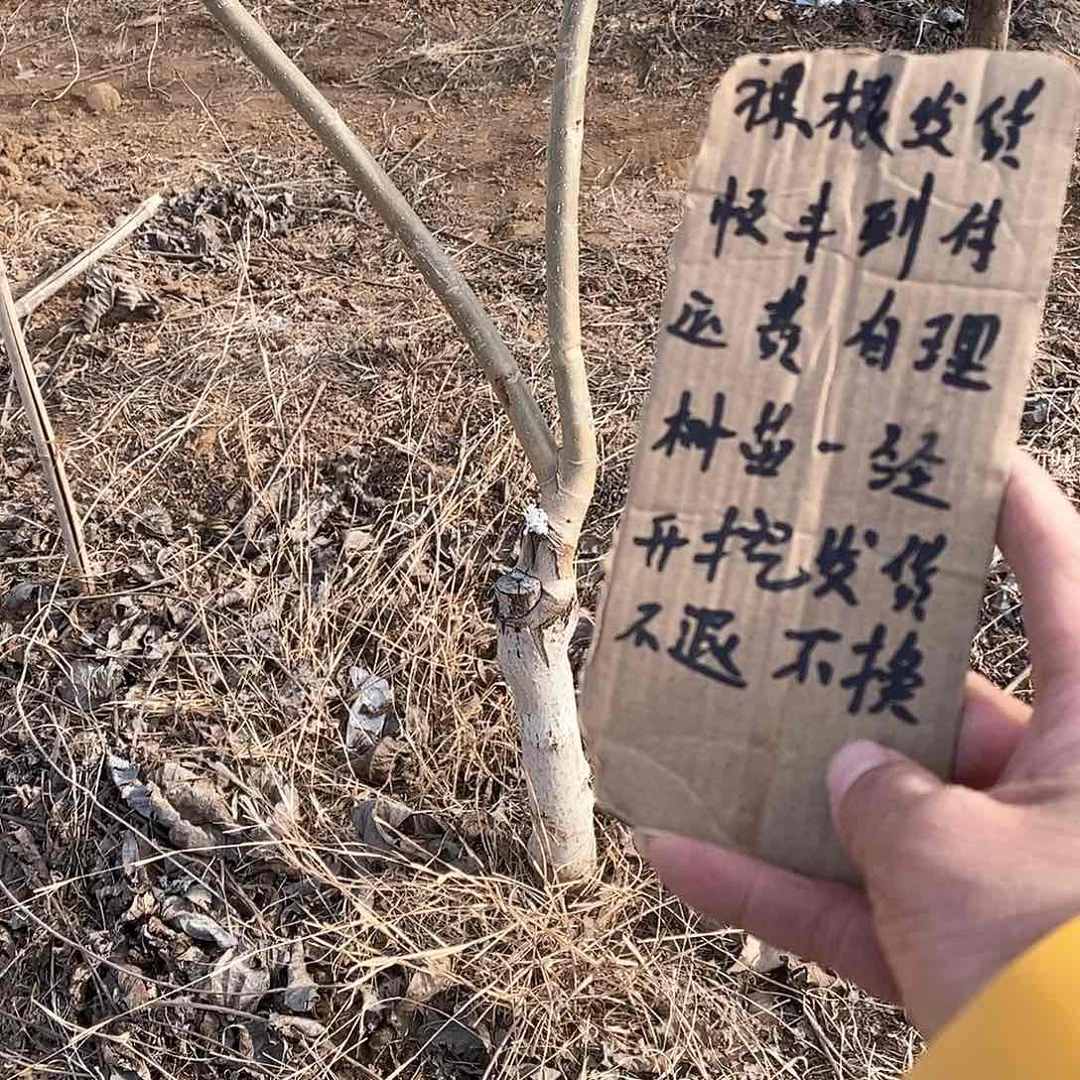 裸根发货
快丰到付
运费自理
树苗一经
开挖发货
不退不换